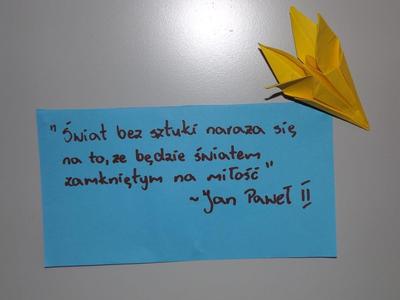 "Świat bez sztuki naraża się
na to, że będzie światem
zamkniętym na miłość"
~Jan Paweł II